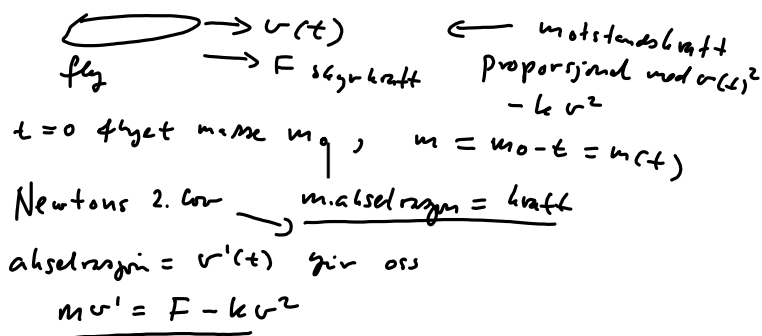 → v(t) ← motstandskraft
fly → F skyvkraft proporsjonal med v(t)²
- k v²
t = 0 flyet masse m₀, m = m₀ - t = m(t)
Newtons 2. lov → m·akselrasjon = kraft
akselrasjon = v'(t) gir oss
m v' = F - k v²